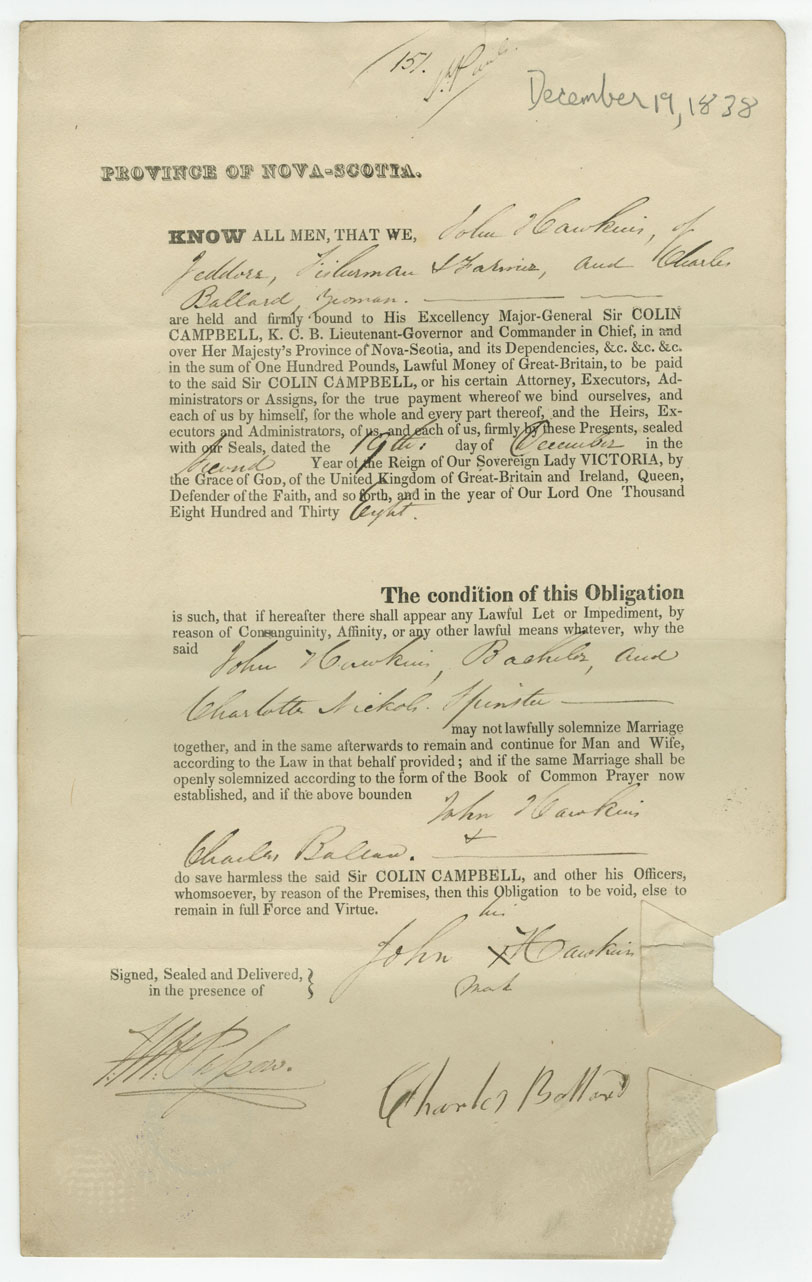 151.
December 19, 1838
PROVINCE OF NOVA-SCOTIA.
KNOW ALL MEN, THAT WE, John Hawkins, of
Jeddore, Fisherman & Farmer, and Charles
Ballard, Yeoman.
are held and firmly bound to His Excellency Major-General Sir COLIN
CAMPBELL, K. C. B. Lieutenant-Governor and Commander in Chief, in and
over Her Majesty's Province of Nova-Scotia, and its Dependencies, &c. &c. &c.
in the sum of One Hundred Pounds, Lawful Money of Great-Britain, to be paid
to the said Sir COLIN CAMPBELL, or his certain Attorney, Executors, Ad-
ministrators or Assigns, for the true payment whereof we bind ourselves, and
each of us by himself, for the whole and every part thereof, and the Heirs, Ex-
ecutors and Administrators, of us, and each of us, firmly by these Presents, sealed
with our Seals, dated the 19th: day of December in the
Second Year of the Reign of Our Sovereign Lady VICTORIA, by
the Grace of GOD, of the United Kingdom of Great-Britain and Ireland, Queen,
Defender of the Faith, and so forth, and in the year of Our Lord One Thousand
Eight Hundred and Thirty Eight.
The condition of this Obligation
is such, that if hereafter there shall appear any Lawful Let or Impediment, by
reason of Consanguinity, Affinity, or any other lawful means whatever, why the
said John Hawkins, Bachelor, and
Charlotte Nickols. Spinster
may not lawfully solemnize Marriage
together, and in the same afterwards to remain and continue for Man and Wife,
according to the Law in that behalf provided; and if the same Marriage shall be
openly solemnized according to the form of the Book of Common Prayer now
established, and if the above bounden John Hawkins
&
Charles Ballard.
do save harmless the said Sir COLIN CAMPBELL, and other his Officers,
whomsoever, by reason of the Premises, then this Obligation to be void, else to
remain in full Force and Virtue.
his
John X Hawkins
mark
Signed, Sealed and Delivered,
in the presence of
Charles Ballard